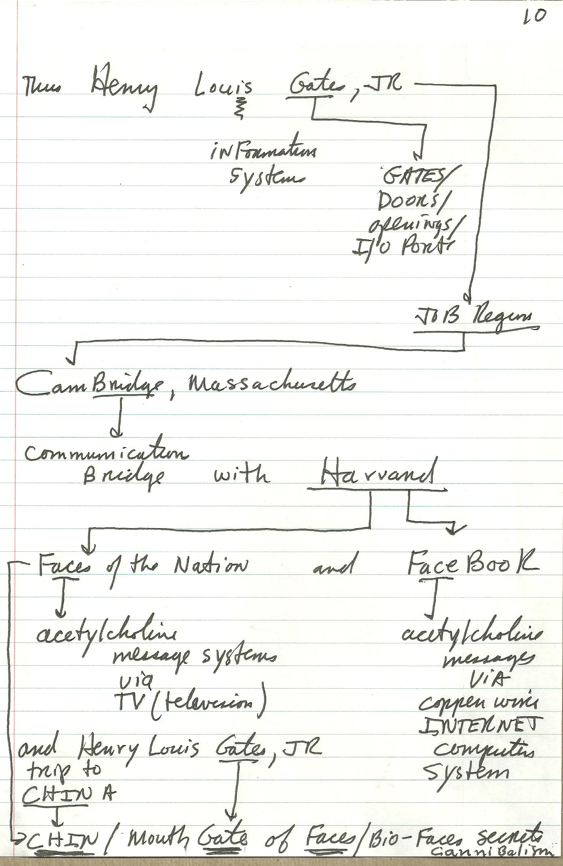 10
Thus Henry Louis Gates, JR
information
systems
GATES/
DOORS/
openings/
I/O Ports
JOB Region
CamBridge, Massachusetts
communication
Bridge with Harvard
Faces of the Nation and FaceBook
acetylcholine
message systems
via
TV (television)
acetylcholine
messages
VIA
copper wire
INTERNET
computer
system
and Henry Louis Gates, JR
trip to
CHINA
CHIN / Mouth Gate of Faces/Bio-Faces secrets
CanniBalism